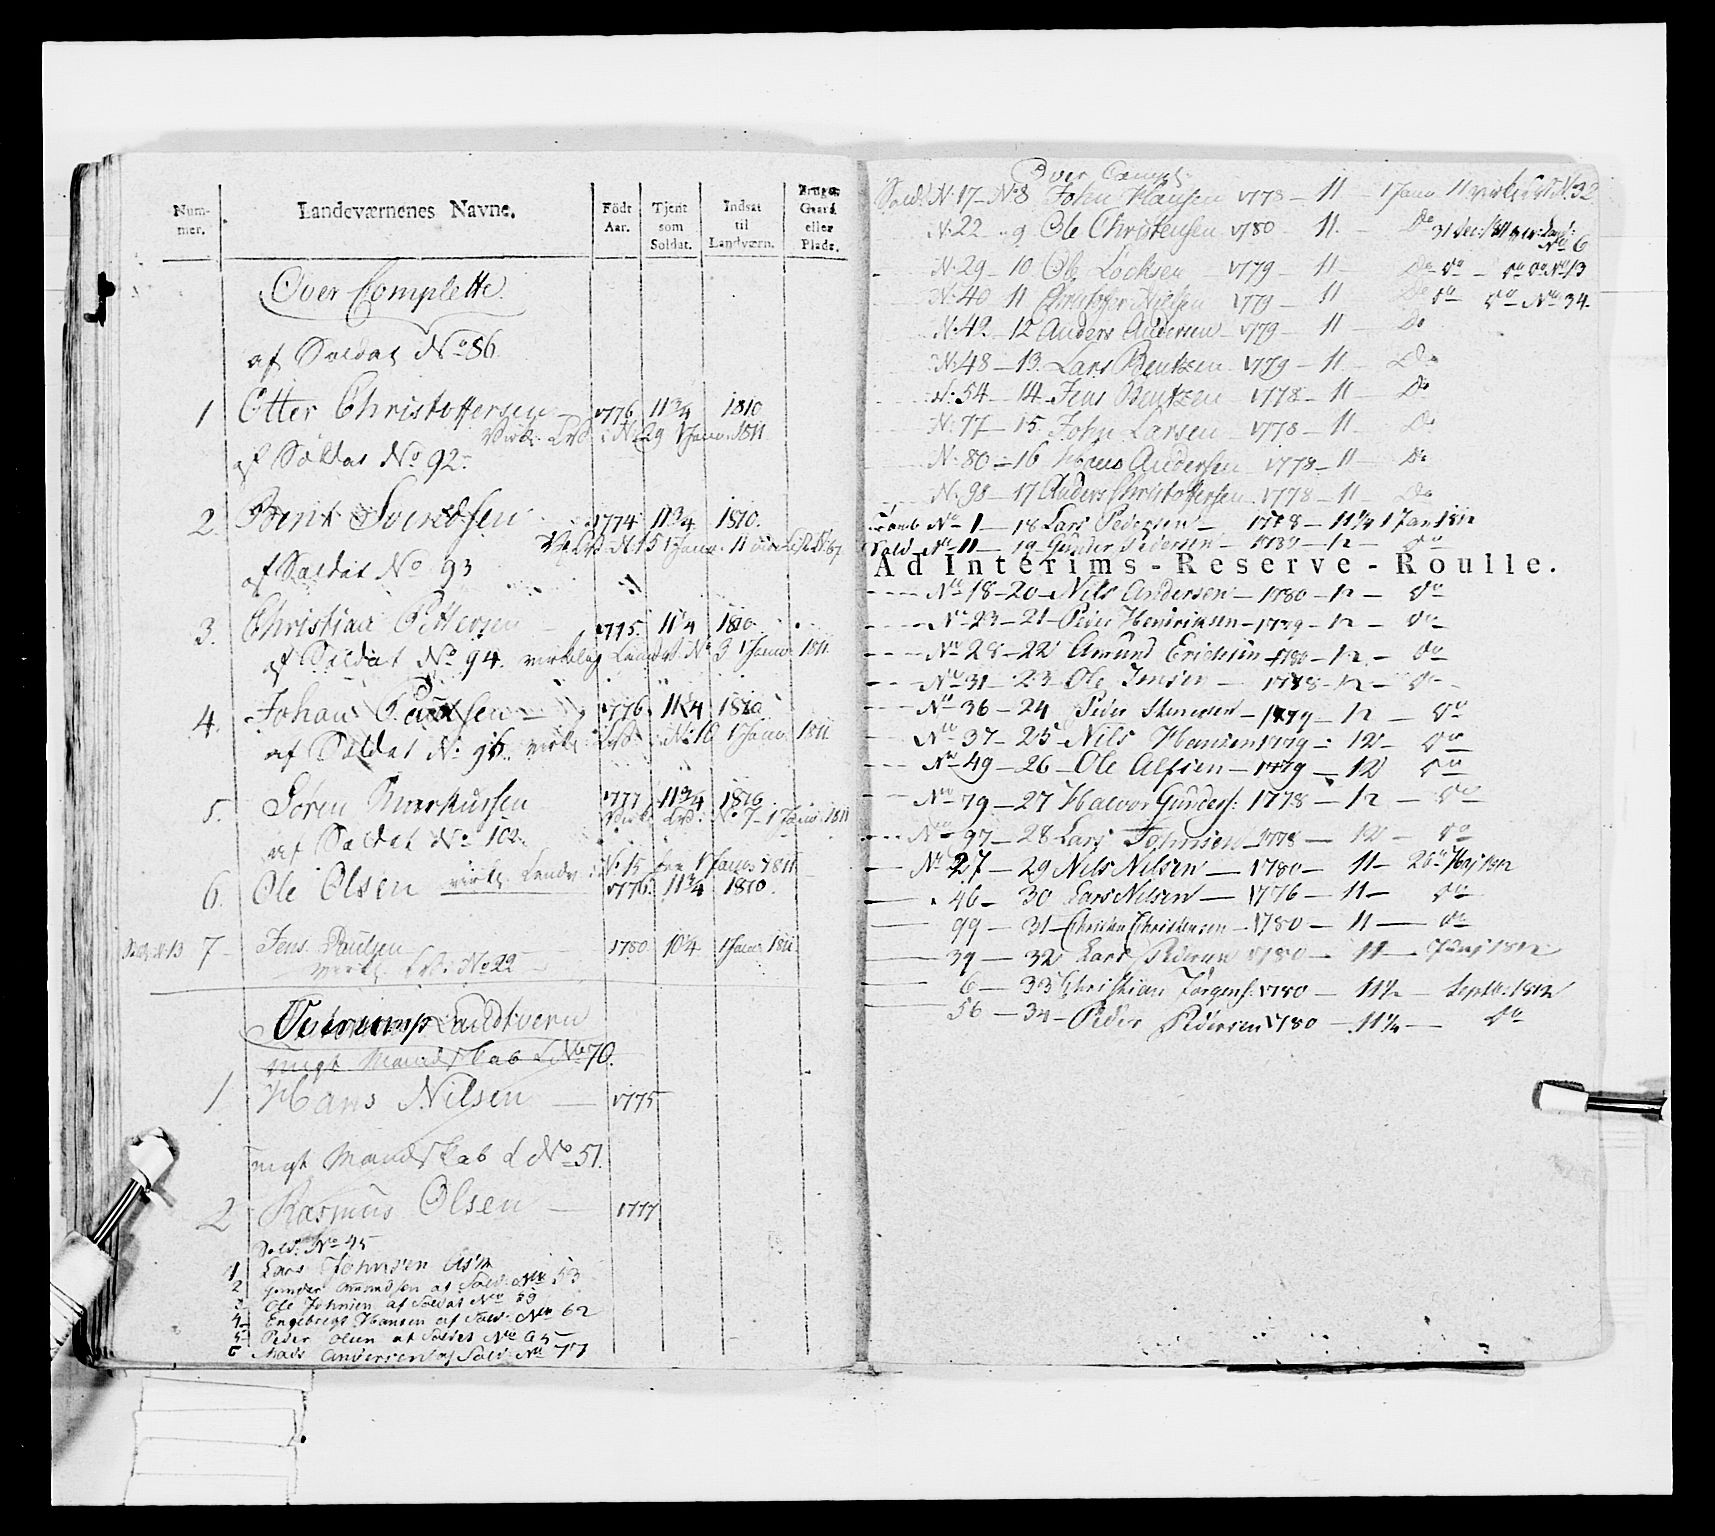 Num-
mer.
Landeværnenes Navne.
Födt
Aar.
Tjent
som
Soldat.
Indsat
til
Landværn.
Gaard
eller
Plads.
Over Complette
af Soldat No 86
1 Otter Christoffersen 1776 11 3/4 1810
Virk. Lvd. i No 29 1 Janu. 1811
af Soldat No 92
2. Svendsen 1774 11 3/4 1810.
af Soldat No 93
3. Christian Pettersen 1775. 11 1/4 1810
af Soldat No 94. virkelig Landv. No 3 1 Janu. 1811
4. Johan 1776 11 1/4 1810
af Soldat No 96. virk. Lvd. No 10 1 Janu. 1811
5. Sören Markussen 1777 11 3/4 1810
Virk. Lvd. No 7 1 Janu. 1811
af Soldat No 102.
virk. Landv. No 15 fra 1 Janu. 1811
6. Ole Olsen 1776. 11 3/4 1810.
Sold. No 13 7 Jens Paulsen 1780 10 1/4 1 Janu 1811
virk. Lvd. No 22
Landtvern
ungt Mandskab No 70.
1 Hans Nilsen 1775
ungt Mandskab No 51.
2 Rasmus Olsen 1777
Sold. No 45
1 Lars Johnsen
2 Gunder Ammundsen af Sold. No 53
3 Ole Johnsen af Soldat No 59
4 Engebregt Hansen af Sold. No 62
5 Peder Olsen af Soldat No 65
6 Mads Andersen af Sold. No 77
Over Compl.
Sold. N. 17 - No 8 John Hansen 1778 - 11 - 1 Janu 11 virk. Lvd. N. 32
N. 22 - 9 Ole Christensen 1780 - 11. - Do 31 Dec. 1811 No 6
N. 29 - 10 Ole 1779 - 11 - Do do - do do No 13
N. 40 11 Christoffer Nielsen 1779 - 11 Do do do No 34.
N. 42 - 12 Anders Andersen 1779 - 11 - Do
N. 48 - 13. Lars Bentzen 1779 - 11 - Do
N. 54 - 14 Jens Bentzen 1778 - 11 - Do
N. 77 - 15 John Larsen 1778 - 11 Do
N. 80 - 16 Hans Andersen 1778 - 11 - Do
N. 98 - 17 Anders Christoffersen 1778 - 11 - Do
No 1 - 18 Lars Pedersen - 1778 - 11 1/4 1 Jan 1812
Sold No 11 - 19 Gunder Pedersen - 12 - do
Ad Interims-Reserve-Roulle.
No 18 - 20 - Nils Andersen - 1780 - 12 - do
No 23 - 21 - Peder Henriksen - 1779 - 12 - do
No 28 - 22 Amund Erichsen - 1780 - 12 - do
No 31 - 23 Ole Jensen - 1778 - 12 - do
No 36 - 24 Peder - 1779 - 12 - do
No 37 - 25 - Nils Hansen 1779 - 12 - do
No 49 - 26 - Ole Alfsen - 1779 - 12 do
No 79 - 27 Halvor Gunders: 1778 - 12 - do
No 97 - 28 Lars Johnsen 1778 - 12 - do
No 27 - 29 Nils Nilsen - 1780 - 11 - 1812
46 - 30 Lars Nilsen - 1776 - 11 - do
99 - 31 - Christen Christensen - 1780 - 11 - do
39 - 32 Lars Pedersen 1780 - 11 - 1812
6 - 33 Christian Jörgens. 1780 - 11 1/2 - Septb. 1812
56 - 34 - Peder Pedersen 1780 - 11 1/4 - do